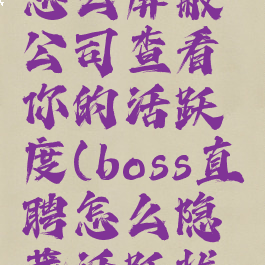 怎么屏蔽
公司查看
你的活跃
度(boss直
聘怎么隐
藏活跃状